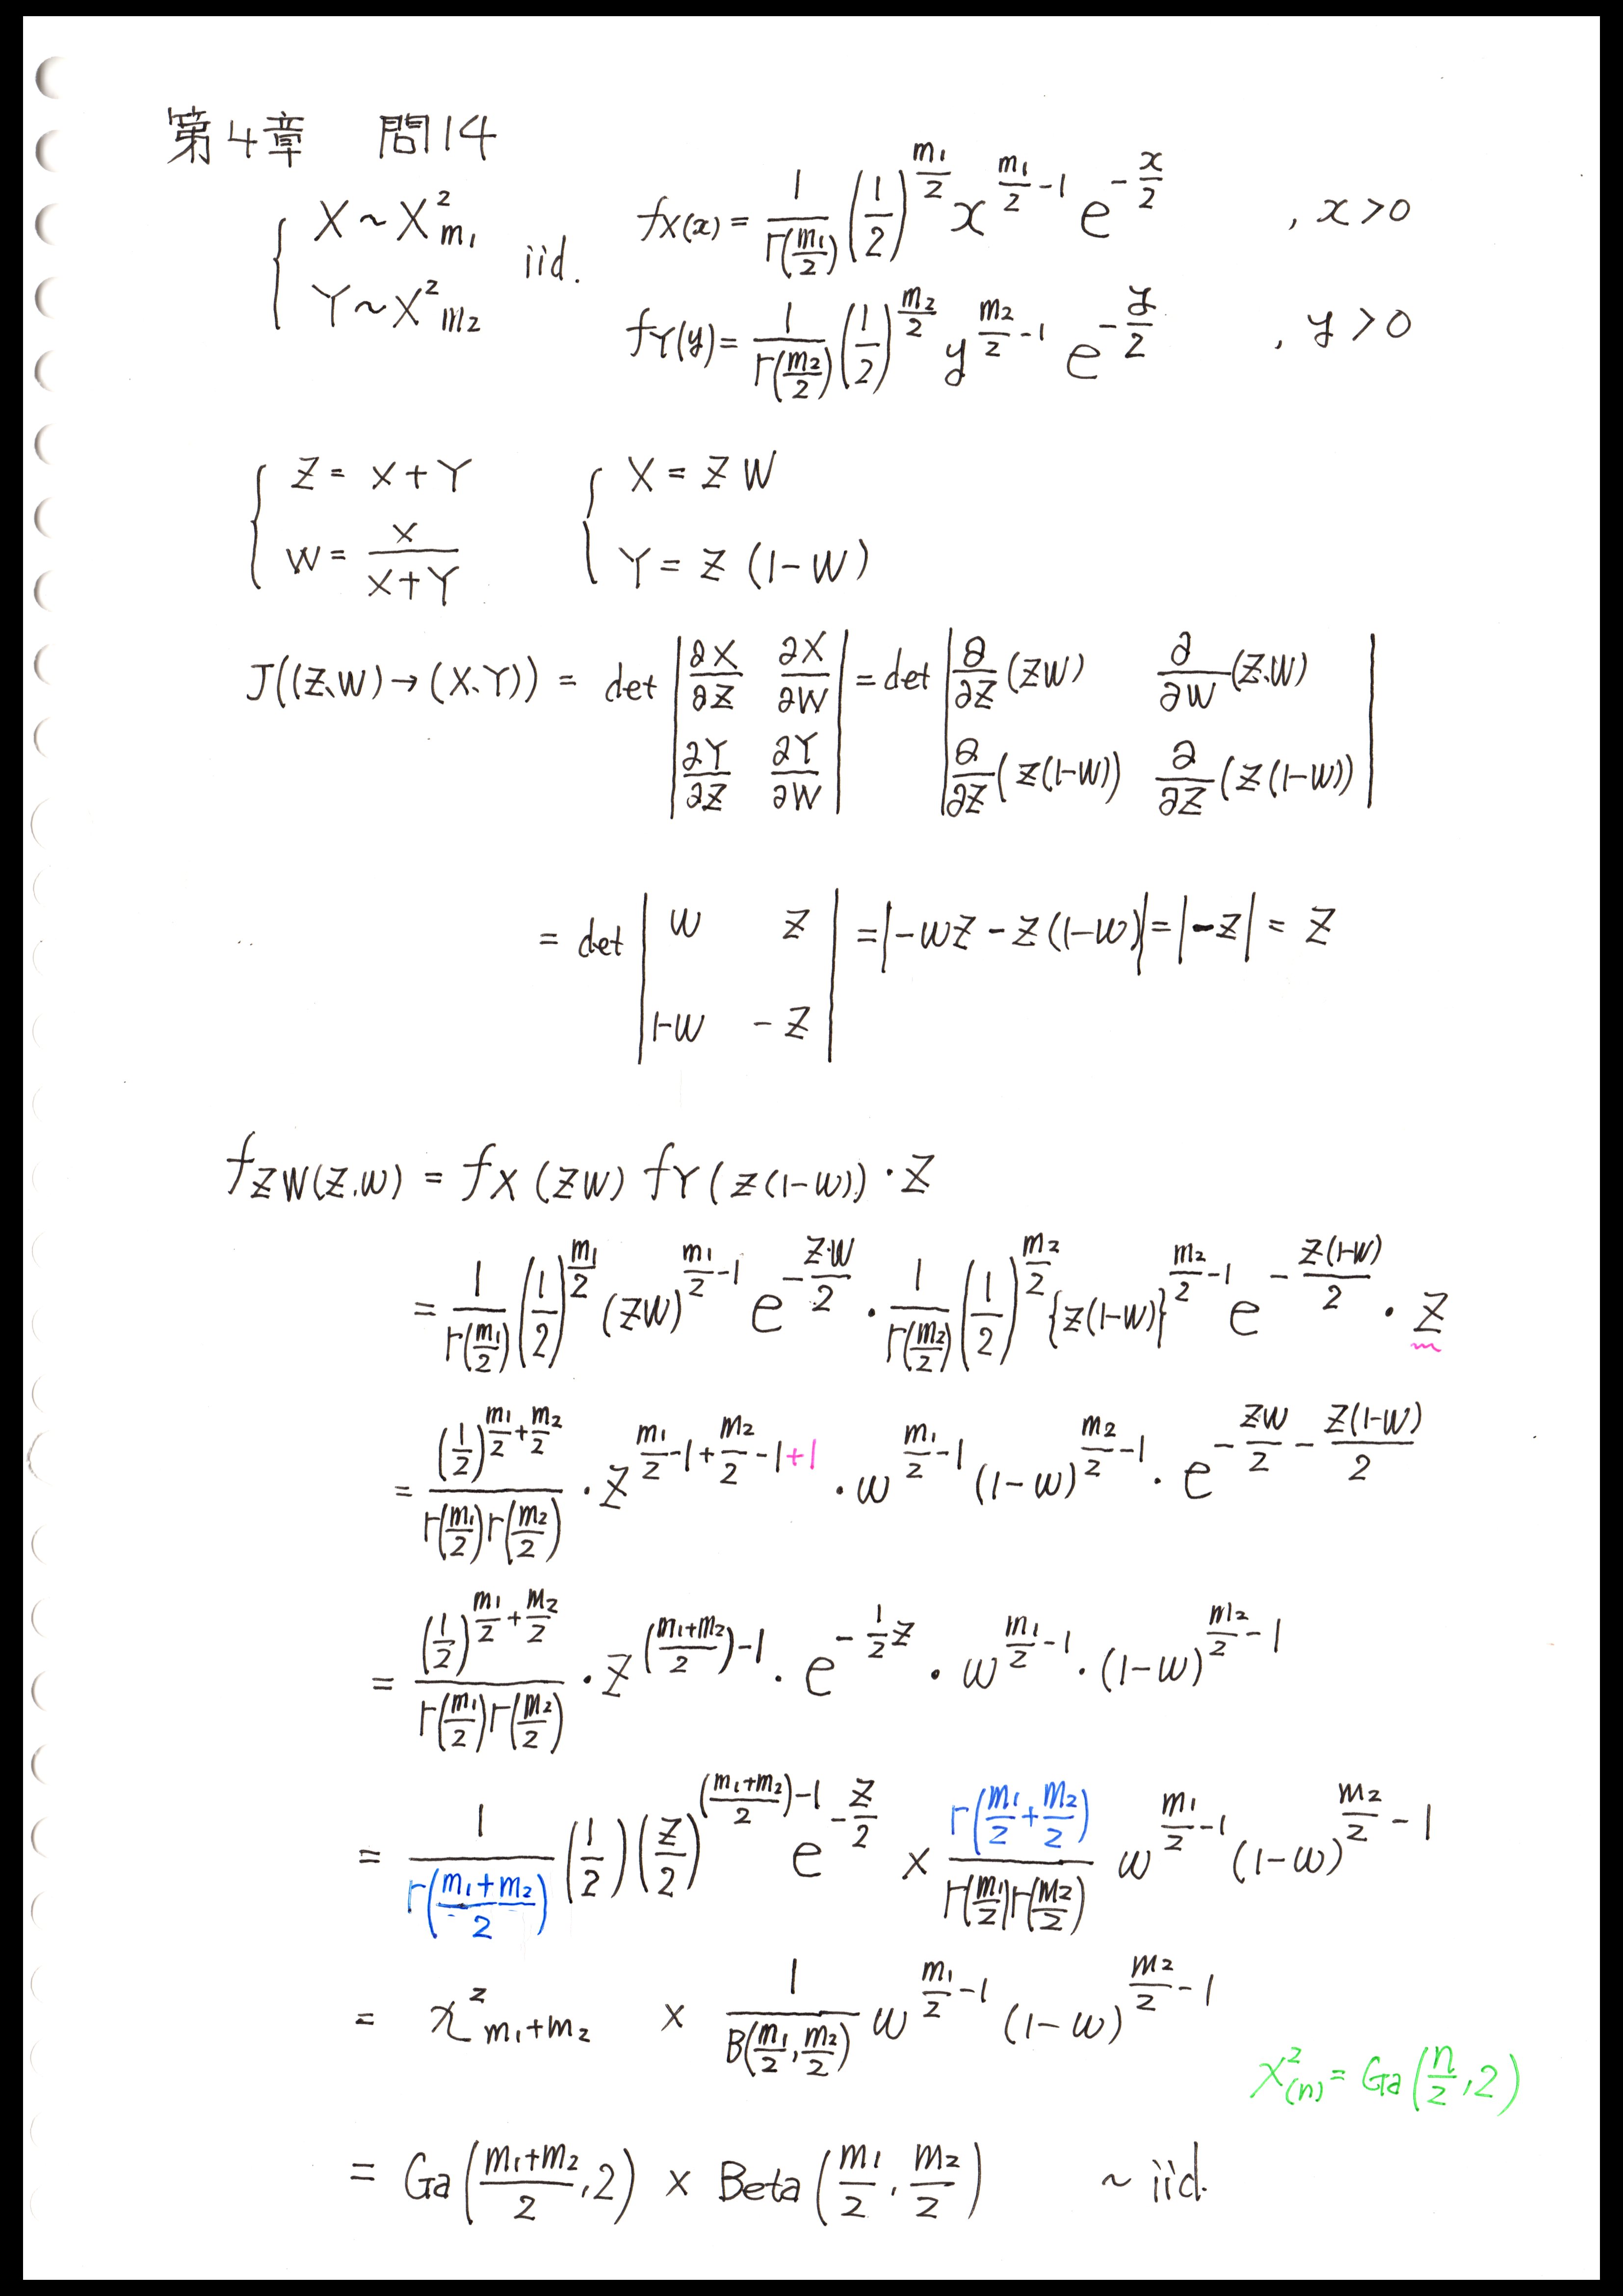 第4章 問14
{ X ~ X²_{m₁}
Y ~ X²_{m₂} iid.
f_X(x) = 1/Γ(m₁/2) (1/2)^{m₁/2} x^{m₁/2 - 1} e^{-x/2} , x > 0
f_Y(y) = 1/Γ(m₂/2) (1/2)^{m₂/2} y^{m₂/2 - 1} e^{-y/2} , y > 0
{ Z = X + Y
W = X/(X+Y)
{ X = ZW
Y = Z(1-W)
J((Z、W) → (X、Y)) = det |∂X/∂Z ∂X/∂W ; ∂Y/∂Z ∂Y/∂W| = det |∂/∂Z (ZW) ∂/∂W (Z.W) ; ∂/∂Z (Z(1-W)) ∂/∂Z (Z(1-W))|
= det |W Z ; 1-W -Z| = |-WZ - Z(1-W)| = |-Z| = Z
f_{ZW}(Z.W) = f_X(ZW) f_Y(Z(1-W)) · Z
= 1/Γ(m₁/2) (1/2)^{m₁/2} (ZW)^{m₁/2 - 1} e^{-Z·W/2} · 1/Γ(m₂/2) (1/2)^{m₂/2} {Z(1-W)}^{m₂/2 - 1} e^{-Z(1-W)/2} · Z
= (1/2)^{m₁/2 + m₂/2} / Γ(m₁/2)Γ(m₂/2) · Z^{m₁/2 - 1 + m₂/2 - 1 + 1} · W^{m₁/2 - 1} (1-W)^{m₂/2 - 1} · e^{-ZW/2 - Z(1-W)/2}
= (1/2)^{m₁/2 + m₂/2} / Γ(m₁/2)Γ(m₂/2) · Z^{((m₁+m₂)/2) - 1} · e^{-1/2 Z} · W^{m₁/2 - 1} · (1-W)^{m₂/2 - 1}
= 1/Γ((m₁+m₂)/2) (1/2) (Z/2)^{((m₁+m₂)/2) - 1} e^{-Z/2} × Γ(m₁/2 + m₂/2) / Γ(m₁/2)Γ(m₂/2) W^{m₁/2 - 1} (1-W)^{m₂/2 - 1}
= χ²_{m₁+m₂} × 1/B(m₁/2, m₂/2) W^{m₁/2 - 1} (1-W)^{m₂/2 - 1}
χ²_{(n)} = Ga(n/2, 2)
= Ga((m₁+m₂)/2, 2) × Beta(m₁/2, m₂/2) ~ iid.